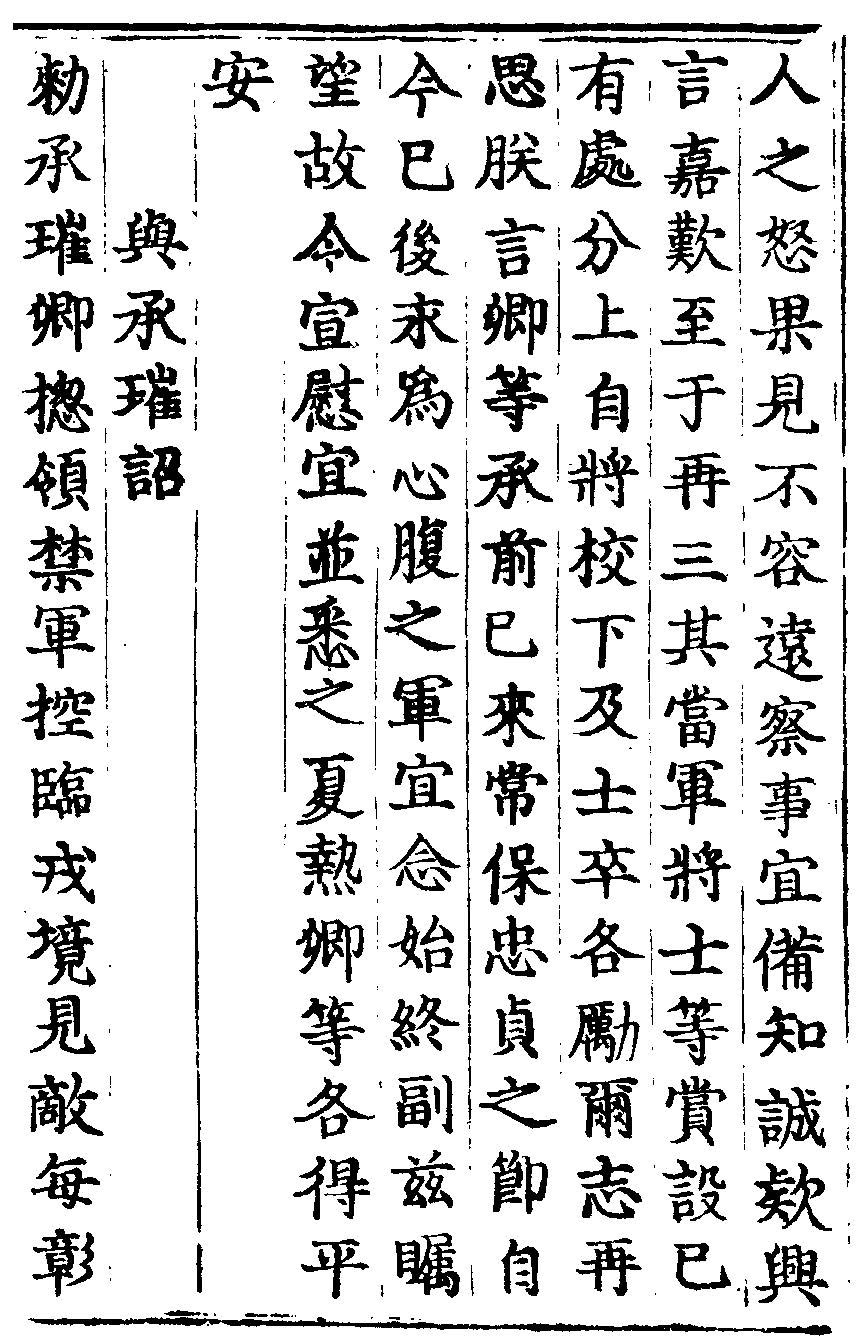 人之怒果見不容遠察事宜備知誠欵興
言嘉歎至于再三其當軍將士等賞設已
有處分上自將校下及士卒各勵爾志再
思朕言卿等承前已來常保忠貞之節自
今已後永爲心腹之軍宜念始終副兹矚
望故令宣慰宜並悉之夏熱卿等各得平
安
與承璀詔
勑承璀卿揔領禁軍控臨戎境見敵每彰